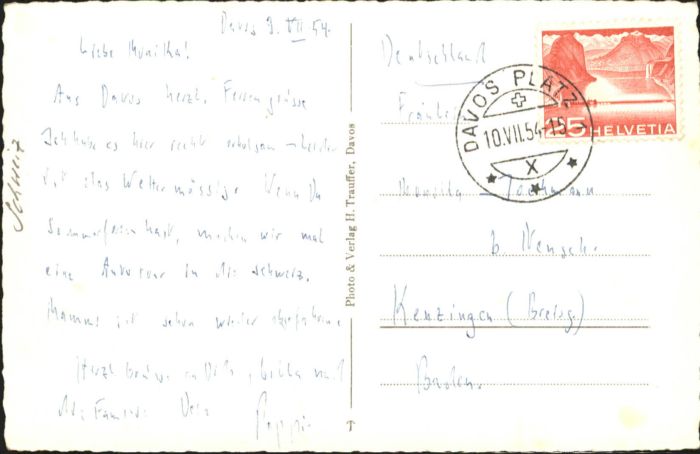 Davos 9. VII 54.
Liebe Monika!
Aus Davos herzl. Feriengrüsse
Ich habe es hier recht erholsam – leider
ist das Wetter mässig. Wenn Du
Sommerferien hast, machen wir mal
eine Autotour in die Schweiz.
Mammi ist schon wieder
Herzl Grüsse an Dich,
die Familie Dein
Pappi
Schweiz
Photo & Verlag H. Trauffer, Davos
Deutschland
Fräulein
DAVOS PLATZ 1
10.VII.54-15
X
HELVETIA
Monika
b.
Kenzingen (Breisg.)
Baden.